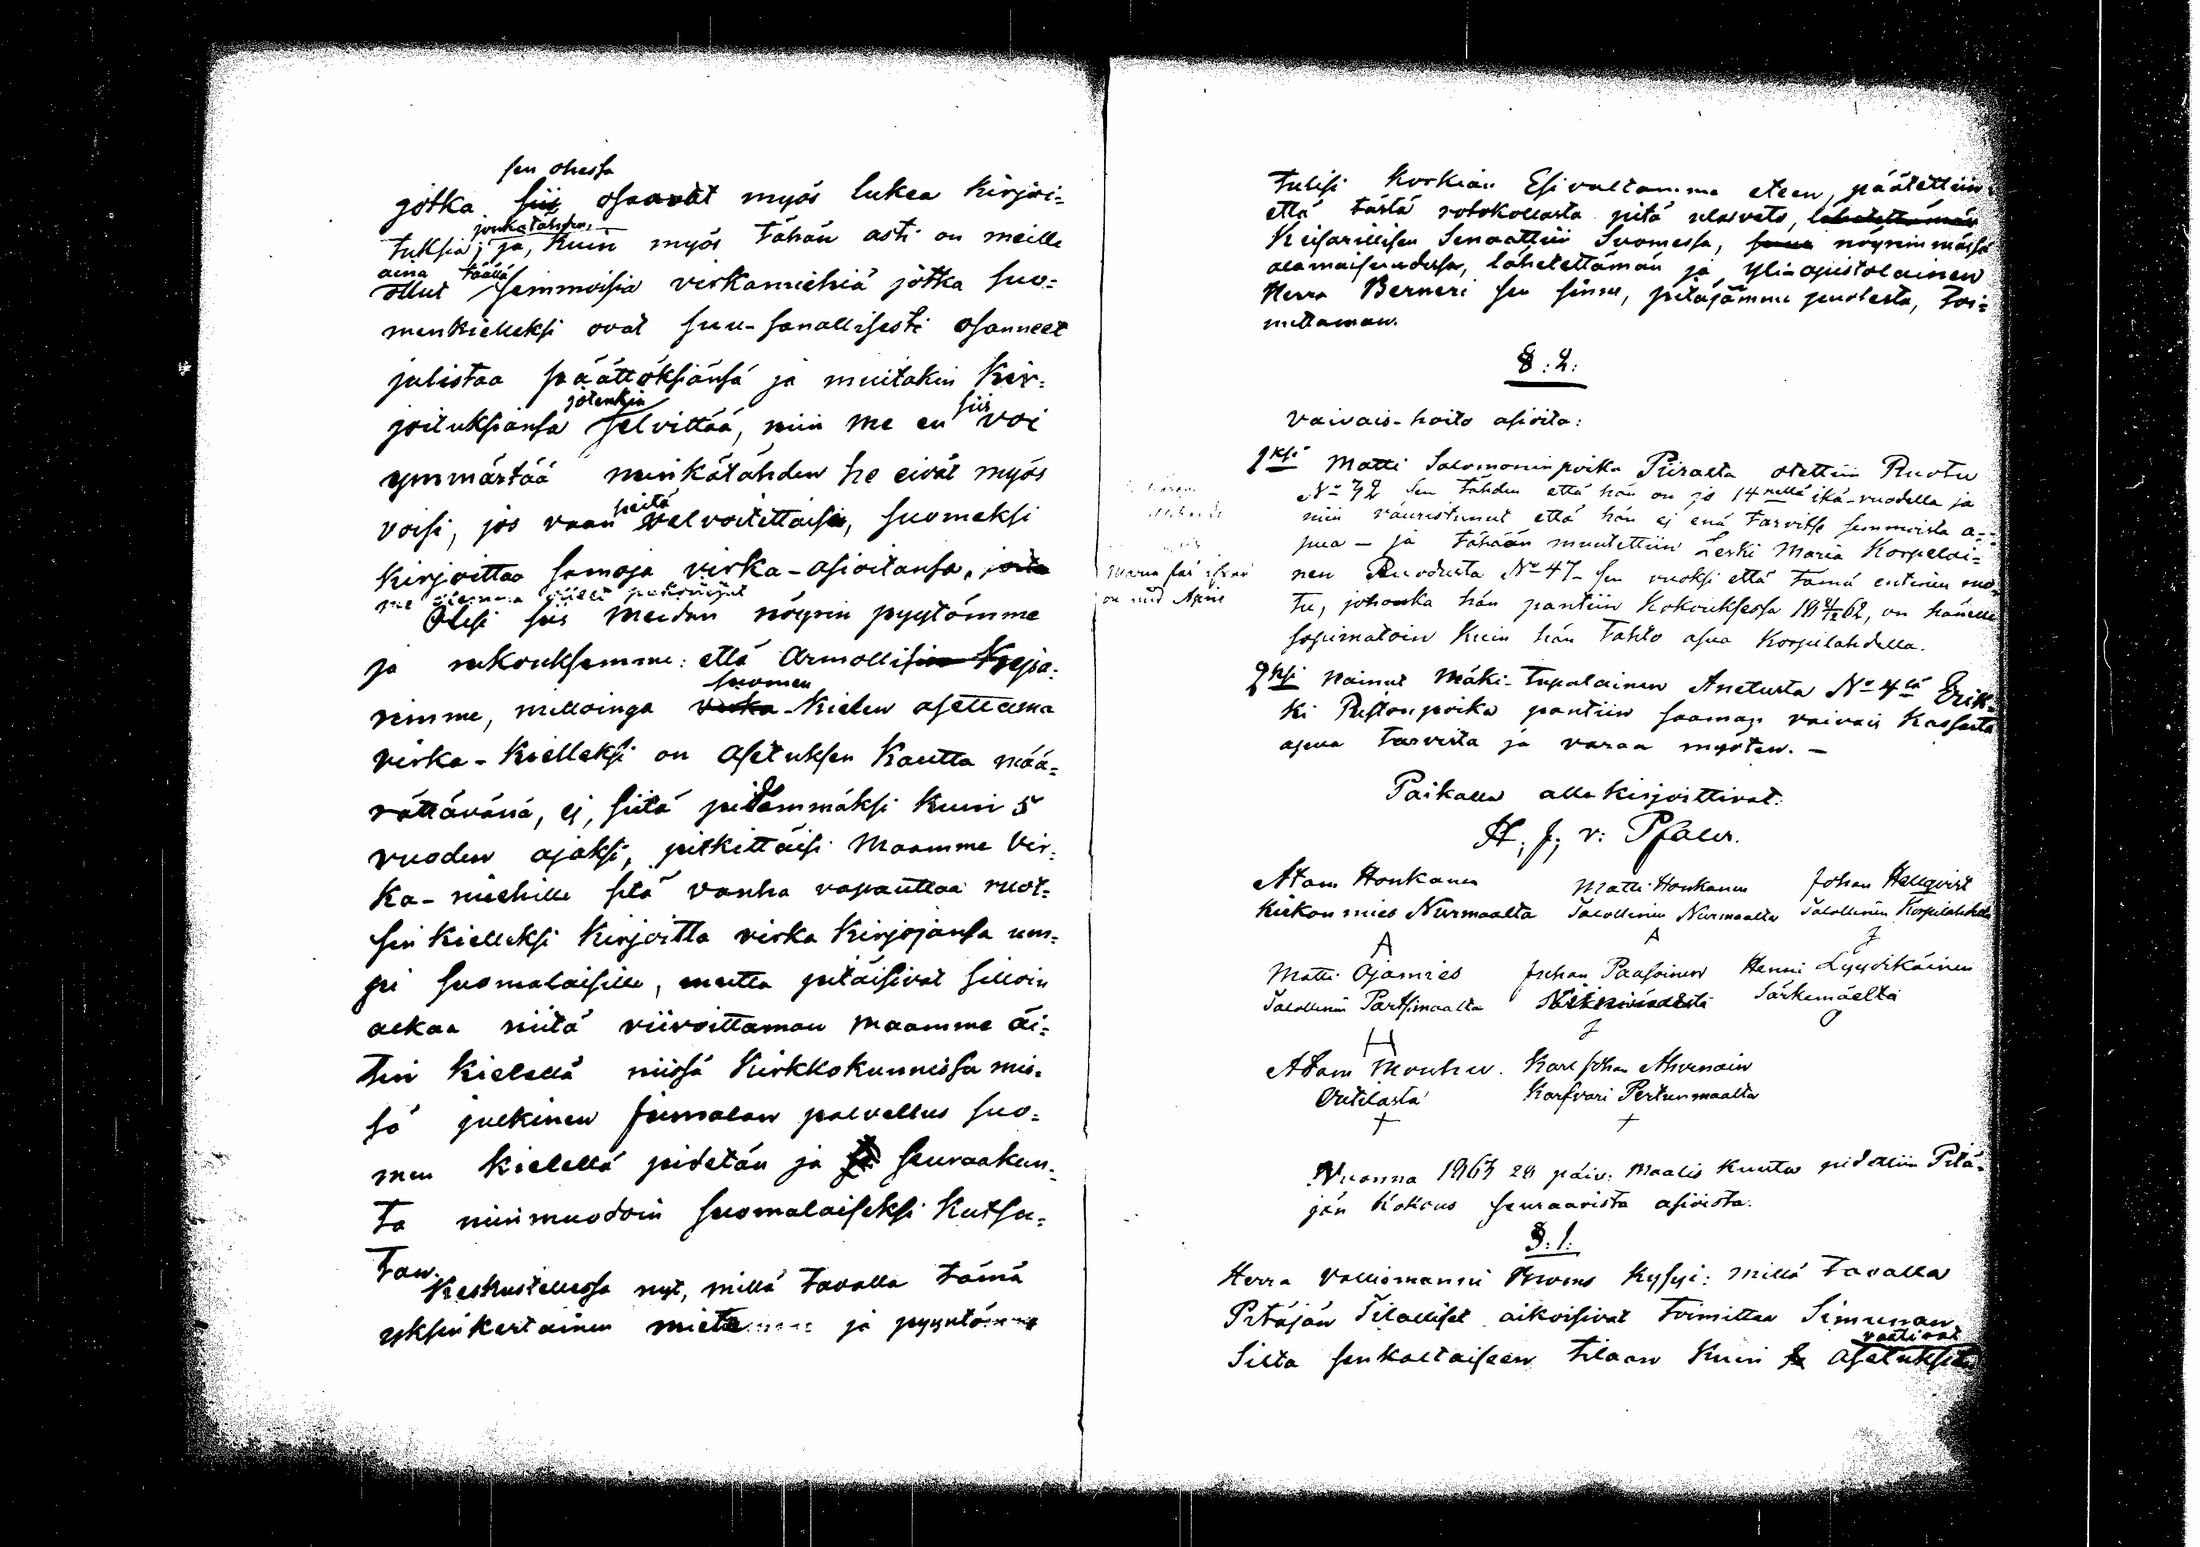 sen ohessa
jotka siis osaavat myös lukea Kirjoi=
jonkatähden
tuksia; ja, kuin myös tähän asti on meille
aina täällä
ollut semmoisia virkamiehiä jotka suo=
menkielleksi ovat suu-sanallisesti osanneet
julistaa päättöksiänsä ja muitakin Kir=
jotenkin siis
joituksiansa selvittää, niin me en voi
ymmärtää minkätähden he eivät myös
heitä
voisi, jos vaan velvoitettaisi, suomeksi
Kirjoittaa samoja virka-asioitansa, joita
me olemma
Olisi siis meidän nöyrin pyytömme
ja rukouksemme: että Armollisin Keisa=
suomen
rimme, milloinga virka-kielen asettama
virka-kielleksi on Asetuksen Kautta mää=
rättävänä, ej, siitä pitemmäksi kuin 5
vuoden ajaksi, pitkittäisi Maamme Vir=
ka-miehille sitä vanha vapauttaa ruot=
sin kielleksi kirjoitta virka kirjojansa um=
pi suomalaisille, mutta pitäisivat silloin
aekaa niitä viivoittaman maamme äi=
tin kielellä niissä kirkkokunnissa mis=
sä julkinen Jumalan palvellus suo=
men kielellä pidetän ja seuraakun=
ta niinmuodoin suomalaiseksi kutsu=
taan.
Keskustellessa nyt, millä tavalla tämä
yksinkertainen mietemme ja pyyntömme
tulisi korkian Esivaltamme eteen, päätettiin
että tästä rotokollasta pitä ulosveto, lähetettämän
Keisarillisen Senaattiin Suomessa, nöyrimmässä
alamaisuudessa, lähetettämän ja Yliopistolainen
Herra Berneri sen sinne, pitäjämme puolesta, toi=
mittaman.
§. 2.
Vaivais-hoito asioita:
1ksi Matti Salomoninpoika Piiralta otettiin Ruotu
No 72 sen tähden että hän on jo 14nellä ikä-vuodella ja
niin vauristunut että hän ej enä tarvitse semmoista a=
pua – ja tähään muutettiin Leski Maria Korpelai=
nen Ruodusta No 47 sen vuoksi että tämä entinen ruo=
tu, johonka hän pantiin Kokouksessa 19 62, on hänelle
sopimatoin kuin hän tahto asua Korpilahdella.
2ksi Nainut Mäki-tupalainen Anetusta No 4tä Erik=
ki Ristonpoika pantiin saamaan vaivais kassasta
apua tarvista ja varaa myöten. –
Paikalla alla kirjoittivat:
H. J. v: Pfaler.
Atam Honkanen Matti Honkanen Johan Hellqvist
Kirkon mies Nurmaalta Talollinen Nurmaalta Talollinen Korpilahdelta
A A J
Matti Ojamies Juhan Paasoinen Henni Lyydikäinen
Talollinen Partsimaalta Särkemäeltä
H J
Atam Mouhu. Karl Johan Ahvenain
Outilasta Karfvari Pertunmaalta
+ +
Vuonna 1863 24 päiv. Maalis kuuta pidettiin Pitä=
jän Kokous seuraavista asioista.
§. 1.
Herra Vallesmanni Kysyi: millä tavalla
Pitäjän Tilalliset aikoisivat toimittaa Simunan
vaativat
Silta senkaltaiseen tilaan kuin Asetukset